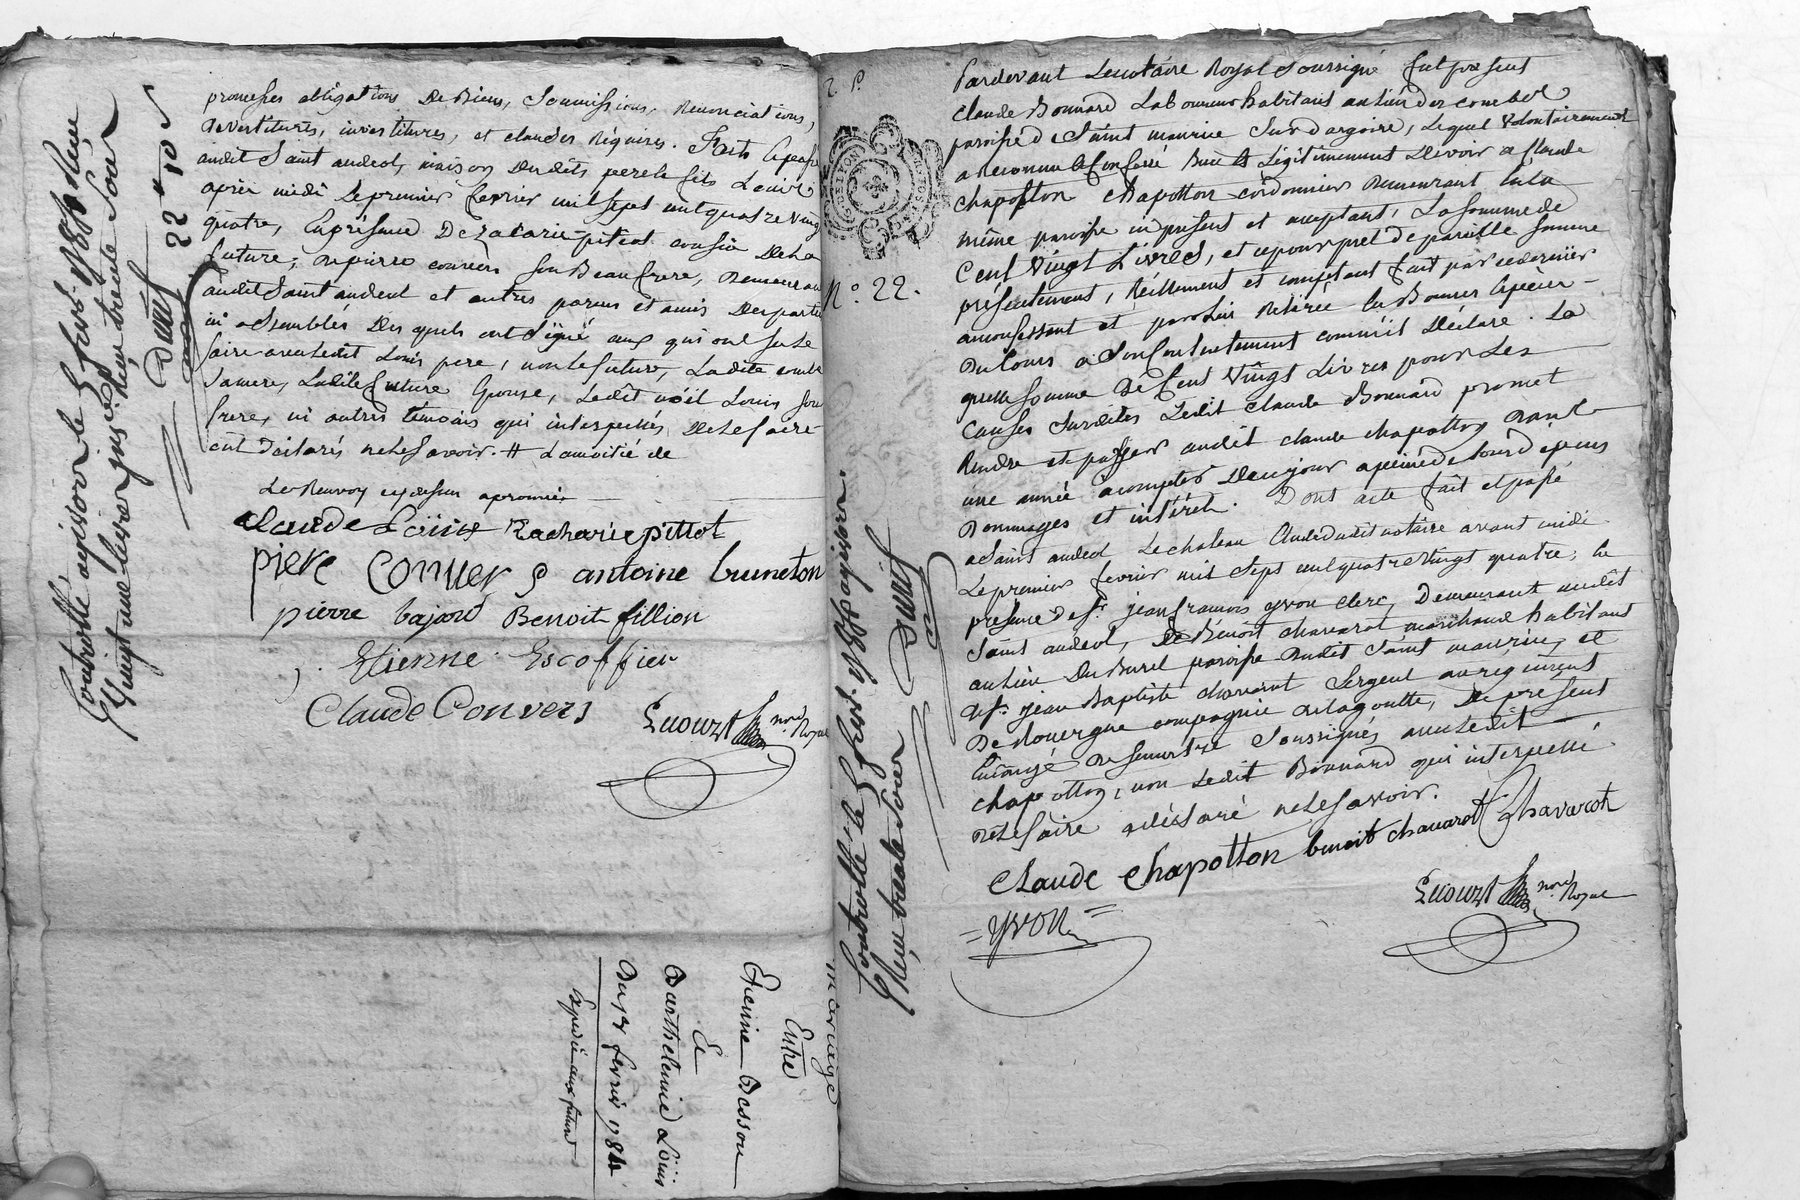 promesses obligations De Biens, Soumissions, Renonciations,
Devestitures, investitures, et clauses Requises. Faits
audit Saint andeol, maison Desdits pere et fils Louis
après midi Le premier fevrier mil sept cent quatre vingt
quatre, En présence De Zacarie pitiot cousin De La
future, pierre convers son Beau frere, Demeurant
audit Saint andeol et autres parens et amis Des parties
ici assemblés Des quels ont Signé ceux qui ont su Le
faire avec Ledit Louis pere, non Le futur, Ladite
Sa mere, Ladite future Epouse, Ledit Noël Louis son
frere, ni autres témoins qui interpellés De Le faire
ont Déclarés ne Le Savoir. # La moitié de
Le Renvoy cy dessus approuvé
claude Loüis Zacharie pittot
piere Conver antoine bruneton
pierre bajard Benoit fillion
Etienne Escoffier
Claude Convers
no.re Royal
Controllé a
Vingt une livre
22 # 10 s
mariage
Entre
Etienne Besson
Et
Barthelemie Loüis
Du 1er fevrier 1784
Expedié aux futurs
2. P.
N.o 22.
Pardevant Le notaire Royal Soussigné fut present
Claude Bonnard Laboureur habitant au lieu des combes
paroisse De Saint maurice Sur dargoire, Lequel volontairement
a Reconnu et Confessé Bien et Légitimement Devoir a Claude
chapotton chapotton cordonnier Demeurant
même paroisse ici present et acceptant, La Somme de
Cent Vingt Livres, et ce pour prêt de pareille Somme
présentement, Réellement et comptant fait par ce dernier
au confessant et par Lui Retirée En Bonnes Espèces
Du Cours a Son Contentement comme il Déclare. La
quelle Somme De Cent Vingt Livres pour Les
Causes Susdites Ledit Claude Bonnard promet
Rendre et payer audit claude chapotton Dans
une année a compter De ce jour a peine de tous dépens
Dommages et intérêts. Dont acte fait et passé
a Saint andeol Le chateau Etude Dudit notaire avant midi
Le premier fevrier mil Sept cent quatre Vingt quatre, En
présence de Sr. jean francois yvon clerc, Demeurant audit
Saint andeol, De Benoît chavarot marchand habitant
au lieu Du Burel paroisse Dudit Saint maurice, et
De Sr. jean Baptiste chavarot Sergent au regiment
De Rouergue compagnie De Lagoutte, De présent
En congé De Semestre Soussignés avec Ledit
chapotton, non Ledit Bonnard qui interpellé
De Le faire a déclaré ne Le Savoir.
Claude Chapotton benoit chavarot Chavarot
yvon
no.re Royal